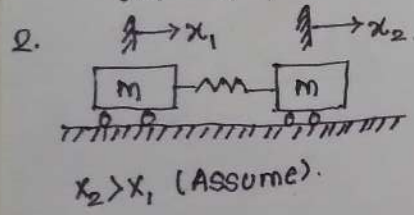 2. x₁ x₂
m m
x₂>x₁ (Assume).